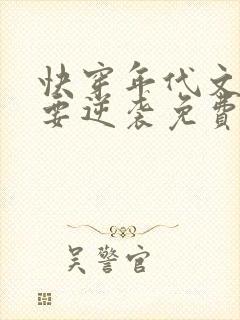 快穿年代文
要逆袭免费
吴警官